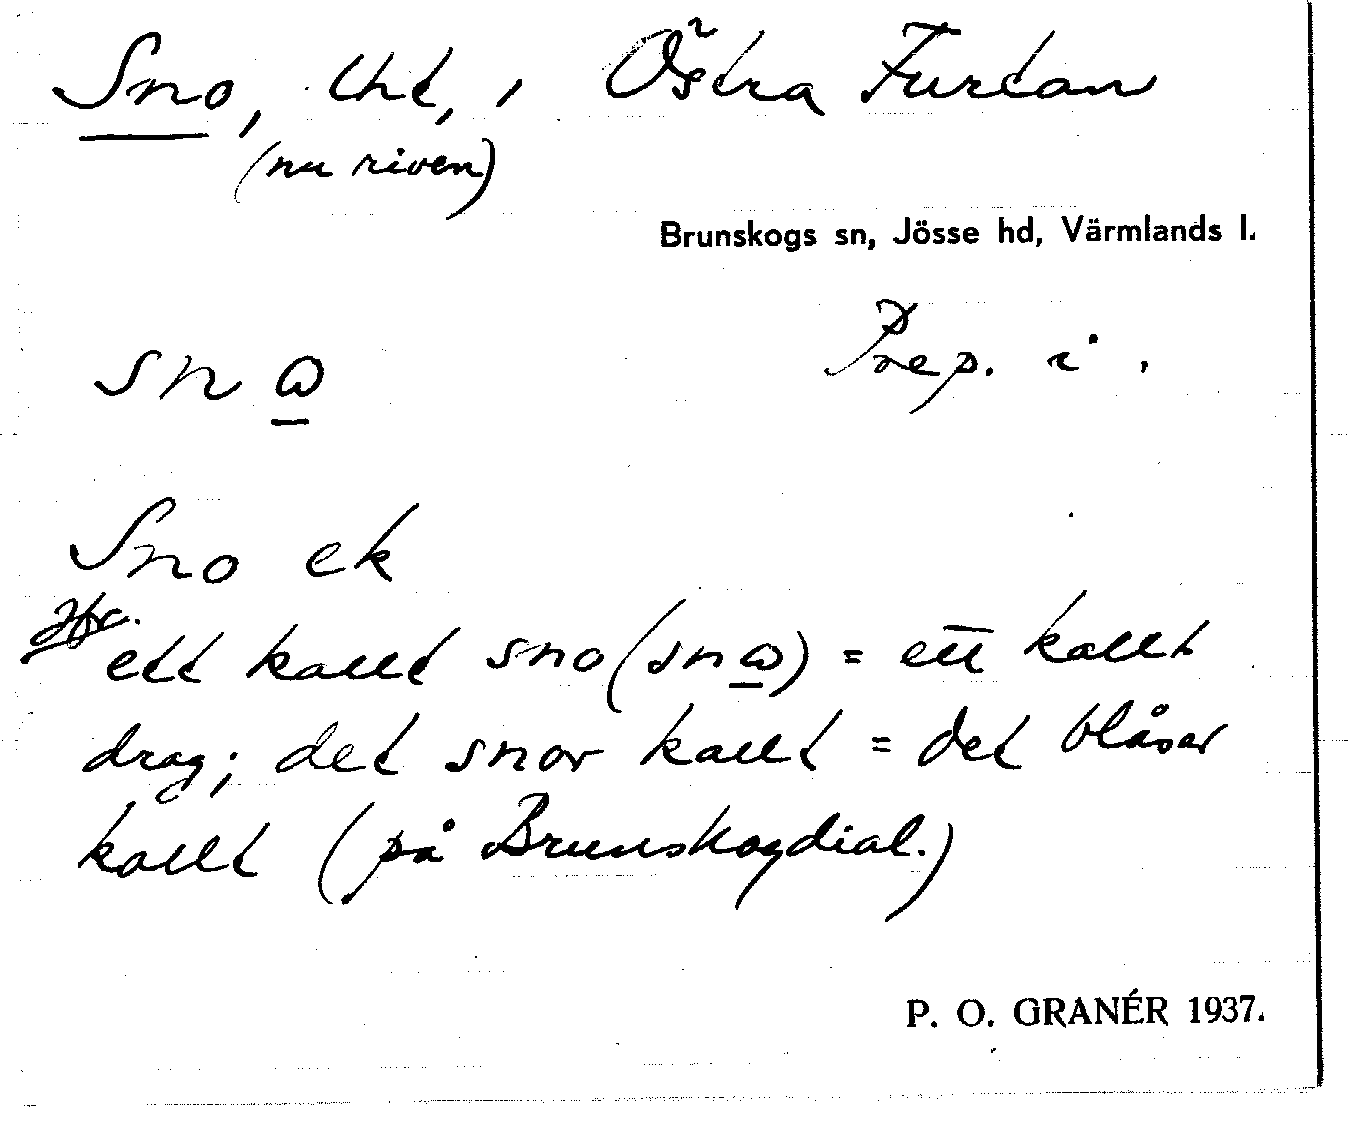 Sno, lht, i Östra Furtan
(nu riven)
Brunskogs sn, Jösse hd, Värmlands l.
snω Prep. i.
Sno ek
Jfr.
ett kallt sno (snω) = ett kallt
drag; det snor kallt = det blåser
kallt (på Brunskogdial.)
P. O. GRANÉR 1937.